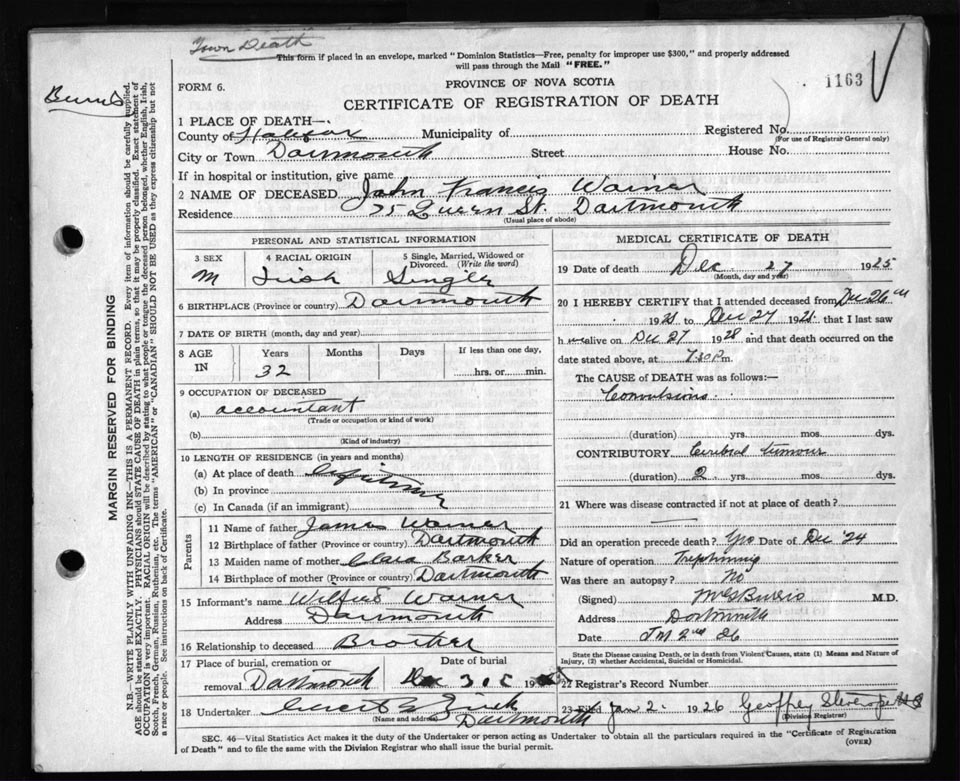 Town Death
This form if placed in an envelope, marked "Dominion Statistics—Free, penalty for improper use $300," and properly addressed
will pass through the Mail "FREE."
1163
FORM 6.
PROVINCE OF NOVA SCOTIA
CERTIFICATE OF REGISTRATION OF DEATH
1 PLACE OF DEATH—
County of Halifax Municipality of Registered No.
(For use of Registrar General only)
City or Town Dartmouth Street House No.
If in hospital or institution, give name
2 NAME OF DECEASED John Francis Warner
Residence 75 Queen St. Dartmouth
(Usual place of abode)
PERSONAL AND STATISTICAL INFORMATION
3 SEX 4 RACIAL ORIGIN 5 Single, Married, Widowed or
Divorced. (Write the word)
M Irish Single
6 BIRTHPLACE (Province or country) Dartmouth
7 DATE OF BIRTH (month, day and year)
8 AGE IN Years Months Days If less than one day,
32 hrs. or min.
9 OCCUPATION OF DECEASED
(a) accountant
(Trade or occupation or kind of work)
(b)
(Kind of industry)
10 LENGTH OF RESIDENCE (in years and months)
(a) At place of death Lifetime
(b) In province
(c) In Canada (if an immigrant)
Parents
11 Name of father James Warner
12 Birthplace of father (Province or country) Dartmouth
13 Maiden name of mother Clara Barker
14 Birthplace of mother (Province or country) Dartmouth
15 Informant's name Wilfred Warner
Address Dartmouth
16 Relationship to deceased Brother
17 Place of burial, cremation or Date of burial
removal Dartmouth Dec 30 19
18 Undertaker Zink
(Name and address) Dartmouth
MEDICAL CERTIFICATE OF DEATH
19 Date of death Dec 27 1925
(Month, day and year)
20 I HEREBY CERTIFY that I attended deceased from Dec 26th
192 to Dec 27 192 that I last saw
h alive on Dec 27 192 and that death occurred on the
date stated above, at 7.30 P m.
The CAUSE of DEATH was as follows:—
Convulsions
(duration) yrs. mos. dys.
CONTRIBUTORY Cerebral tumour
(duration) 2 yrs. mos. dys.
21 Where was disease contracted if not at place of death?
Did an operation precede death? Yes Date of Dec '24
Nature of operation Trephining
Was there an autopsy? No
(Signed) M.D.
Address Dartmouth
Date Jan 2nd 26
State the Disease causing Death, or in death from Violent Causes, state (1) Means and Nature of
Injury, (2) whether Accidental, Suicidal or Homicidal.
22 Registrar's Record Number
23 Filed Jan 2. 1926 Geoffrey
(Division Registrar)
SEC. 46—Vital Statistics Act makes it the duty of the Undertaker or person acting as Undertaker to obtain all the particulars required in the "Certificate of Registration
of Death" and to file the same with the Division Registrar who shall issue the burial permit.
(OVER)
MARGIN RESERVED FOR BINDING
N.B.—WRITE PLAINLY WITH UNFADING INK—THIS IS A PERMANENT RECORD. Every item of information should be carefully supplied.
AGE should be stated EXACTLY. PHYSICIANS should STATE CAUSE OF DEATH in plain terms, so that it may be properly classified. Exact statement of
OCCUPATION is very important. RACIAL ORIGIN will be described by stating to what people or tongue the deceased person belonged, whether English, Irish,
Scotch, French, German, Russian, Ruthenian, etc. The terms "AMERICAN" or "CANADIAN" SHOULD NOT BE USED as they express citizenship but not
a race or people. See instructions on back of Certificate.